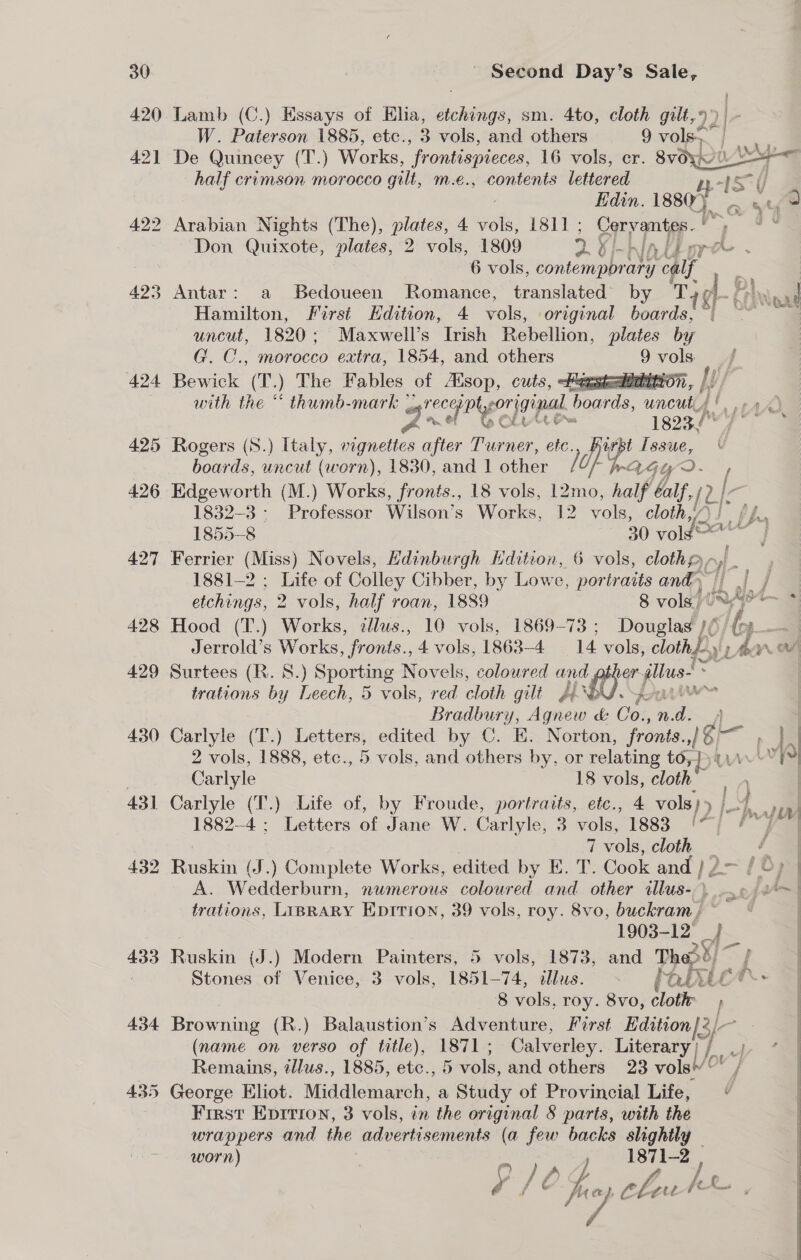 30 Second Day's Sale,
420 Lamb (C.) Essays of Elia, etchings, sm. 4to, cloth gilt,
W. Paterson 1885, etc., 3 vols, and others 9 vols
421 De Quincey (T.) Works, frontispieces, 16 vols, cr. 8vo,
half crimson morocco gilt, m.e., contents lettered
Edin. 1880
422 Arabian Nights (The), plates, 4 vols, 1811; Cervantes.
Don Quixote, plates, 2 vols, 1809
6 vols, contemporary calf
423 Antar: a Bedoueen Romance, translated by T.
Hamilton, First Edition, 4 vols, original boards,
uncut, 1820; Maxwell's Irish Rebellion, plates by
G. C., morocco extra, 1854, and others 9 vols
424 Bewick (T.) The Fables of Æsop, cuts, First Edition,
with the “thumb-mark” receipt, original boards, uncut
1823
425 Rogers (S.) Italy, vignettes after Turner, etc., First Issue,
boards, uncut (worn), 1830, and 1 other 10/- Maggs 2.
426 Edgeworth (M.) Works, fronts., 18 vols, 12mo, half calf,
1832-3; Professor Wilson's Works, 12 vols, cloth,
1855-8 30 vols
427 Ferrier (Miss) Novels, Edinburgh Edition, 6 vols, cloth,
1881-2; Life of Colley Cibber, by Lowe, portraits and
etchings, 2 vols, half roan, 1889 8 vols
428 Hood (T.) Works, illus., 10 vols, 1869-73; Douglas
Jerrold's Works, fronts., 4 vols, 1863-4 14 vols, cloth
429 Surtees (R. S.) Sporting Novels, coloured and other illus-
trations by Leech, 5 vols, red cloth gilt
Bradbury, Agnew & Co., n.d.
430 Carlyle (T.) Letters, edited by C. E. Norton, fronts.,
2 vols, 1888, etc., 5 vols, and others by, or relating to,
Carlyle 18 vols, cloth
431 Carlyle (T.) Life of, by Froude, portraits, etc., 4 vols,
1882-4; Letters of Jane W. Carlyle, 3 vols, 1883
7 vols, cloth
432 Ruskin (J.) Complete Works, edited by E. T. Cook and
A. Wedderburn, numerous coloured and other illus-
trations, Library Edition, 39 vols, roy. 8vo, buckram
1903-12
433 Ruskin (J.) Modern Painters, 5 vols, 1873, and The
Stones of Venice, 3 vols, 1851-74, illus.
8 vols, roy. 8vo, cloth
434 Browning (R.) Balaustion's Adventure, First Edition
(name on verso of title), 1871; Calverley. Literary
Remains, illus., 1885, etc., 5 vols, and others 23 vols
435 George Eliot. Middlemarch, a Study of Provincial Life,
First Edition, 3 vols, in the original 8 parts, with the
wrappers and the advertisements (a few backs slightly
worn) 1871-2